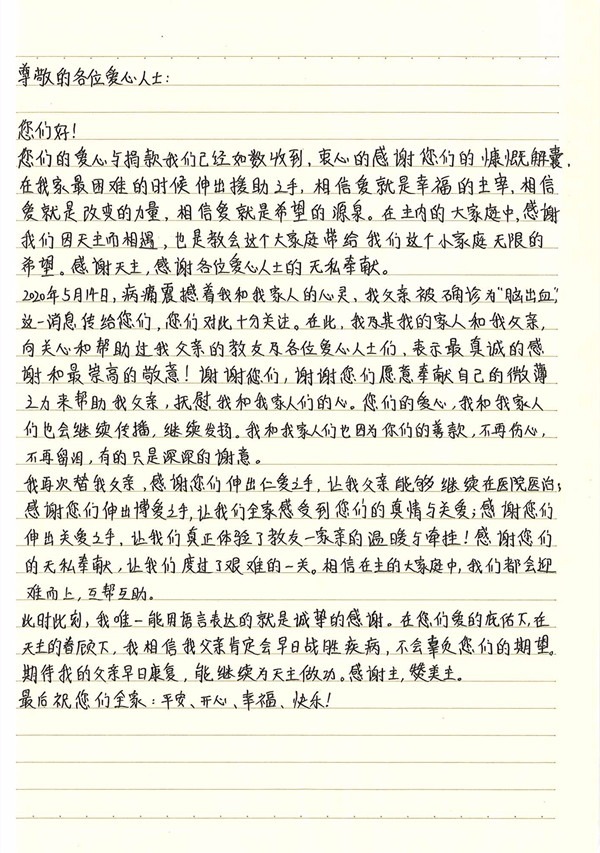 尊敬的各位爱心人士:
您们好!
您们的爱心与捐款我们已经如数收到,衷心的感谢您们的慷慨解囊,
在我家最困难的时候伸出援助之手,相信爱就是幸福的主宰,相信
爱就是改变的力量,相信爱就是希望的源泉。在主内的大家庭中,感谢
我们因天主而相遇,也是教会这个大家庭带给我们这个小家庭无限的
希望。感谢天主,感谢各位爱心人士的无私奉献。
2020年5月14日,病痛震撼着我和我家人的心灵、我父亲被确诊为“脑出血”,
这一消息传给您们,您们对此十分关注。在此,我及其我的家人和我父亲,
向关心和帮助过我父亲的教友及各位爱心人士们,表示最真诚的感
谢和最崇高的敬意!谢谢您们,谢谢您们愿意奉献自己的微薄
之力来帮助我父亲,抚慰我和我家人们的心。您们的爱心,我和我家人
们也会继续传播,继续发扬。我和我家人们也因为你们的善款,不再伤心,
不再留泪,有的只是深深的谢意。
我再次替我父亲、感谢您们伸出仁爱之手,让我父亲能够继续在医院医治;
感谢您们伸出博爱之手,让我们全家感受到您们的真情与关爱;感谢您们
伸出关爱之手,让我们真正体验了教友一家亲的温暖与牵挂!感谢您们
的无私奉献,让我们度过了艰难的一关。相信在主的大家庭中,我们都会迎
难而上,互帮互助。
此时此刻,我唯一能用语言表达的就是诚挚的感谢。在您们爱的庇佑下,在
天主的眷顾下,我相信我父亲肯定会早日战胜疾病,不会辜负您们的期望。
期待我的父亲早日康复,能继续为天主做功。感谢主,赞美主。
最后祝您们全家:平安、开心、幸福、快乐!